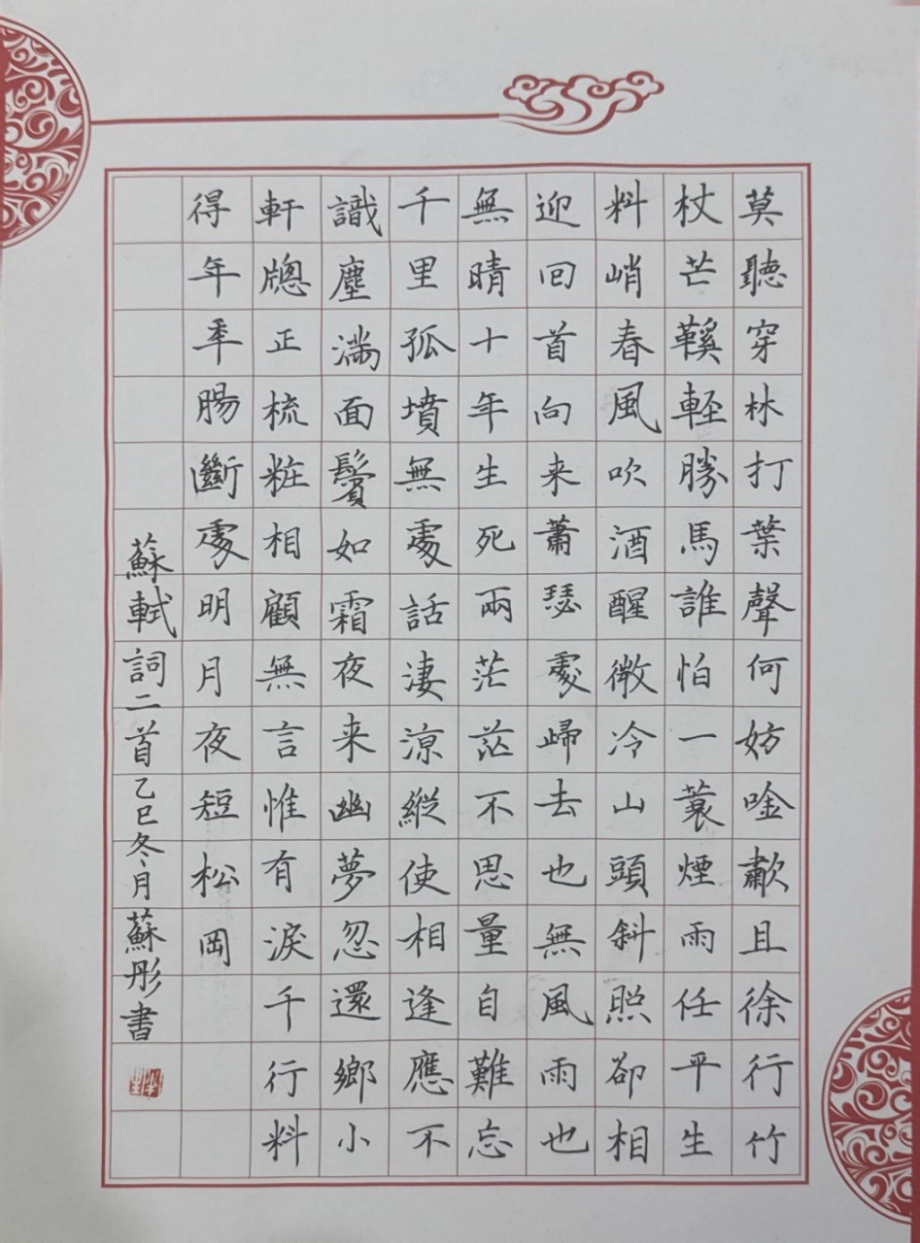 莫聽穿林打葉聲何妨唫歗且徐行竹
杖芒鞵輕勝馬誰怕一蓑煙雨任平生
料峭春風吹酒醒微冷山頭斜照卻相
迎回首向来蕭瑟處歸去也無風雨也
無晴十年生死兩茫茫不思量自難忘
千里孤墳無處話淒涼縱使相逢應不
識塵滿面鬢如霜夜来幽夢忽還鄉小
軒牎正梳粧相顧無言惟有淚千行料
得年年腸斷處明月夜短松岡
蘇軾詞二首乙巳冬月蘇彤書